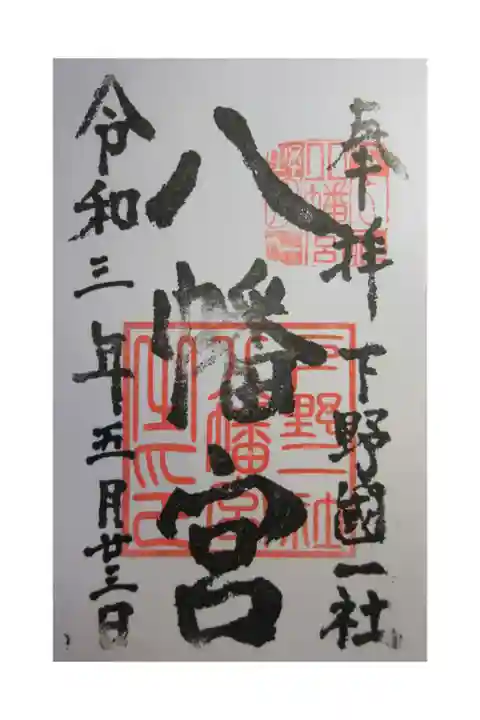 奉拝 下野國一社
八幡宮
令和三年五月廿三日